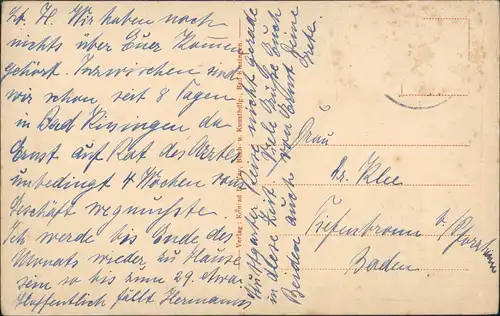 L. H. Wir haben noch
nichts über Euer Kommen
gehört. Inzwischen sind
wir schon seit 8 Tagen
in Bad Kissingen, da
Ernst auf Rat des Arztes
unbedingt 4 Wochen vom
Geschäft wegmusste.
Ich werde bis Ende des
Monats wieder zu Hause
sein so bis zum 29. etwa
Hoffentlich fällt Hermanns
Stuttgarter Reise nicht gerade
in diese Zeit. Viele Grüße Euch
Beiden auch von Ernst Deine
Grete.
Verlag Konrad Buch- u. Kunsthdlg., Bad Kissingen
Frau
Dr. Klee
Tiefenbronn b. Pforzheim
Baden